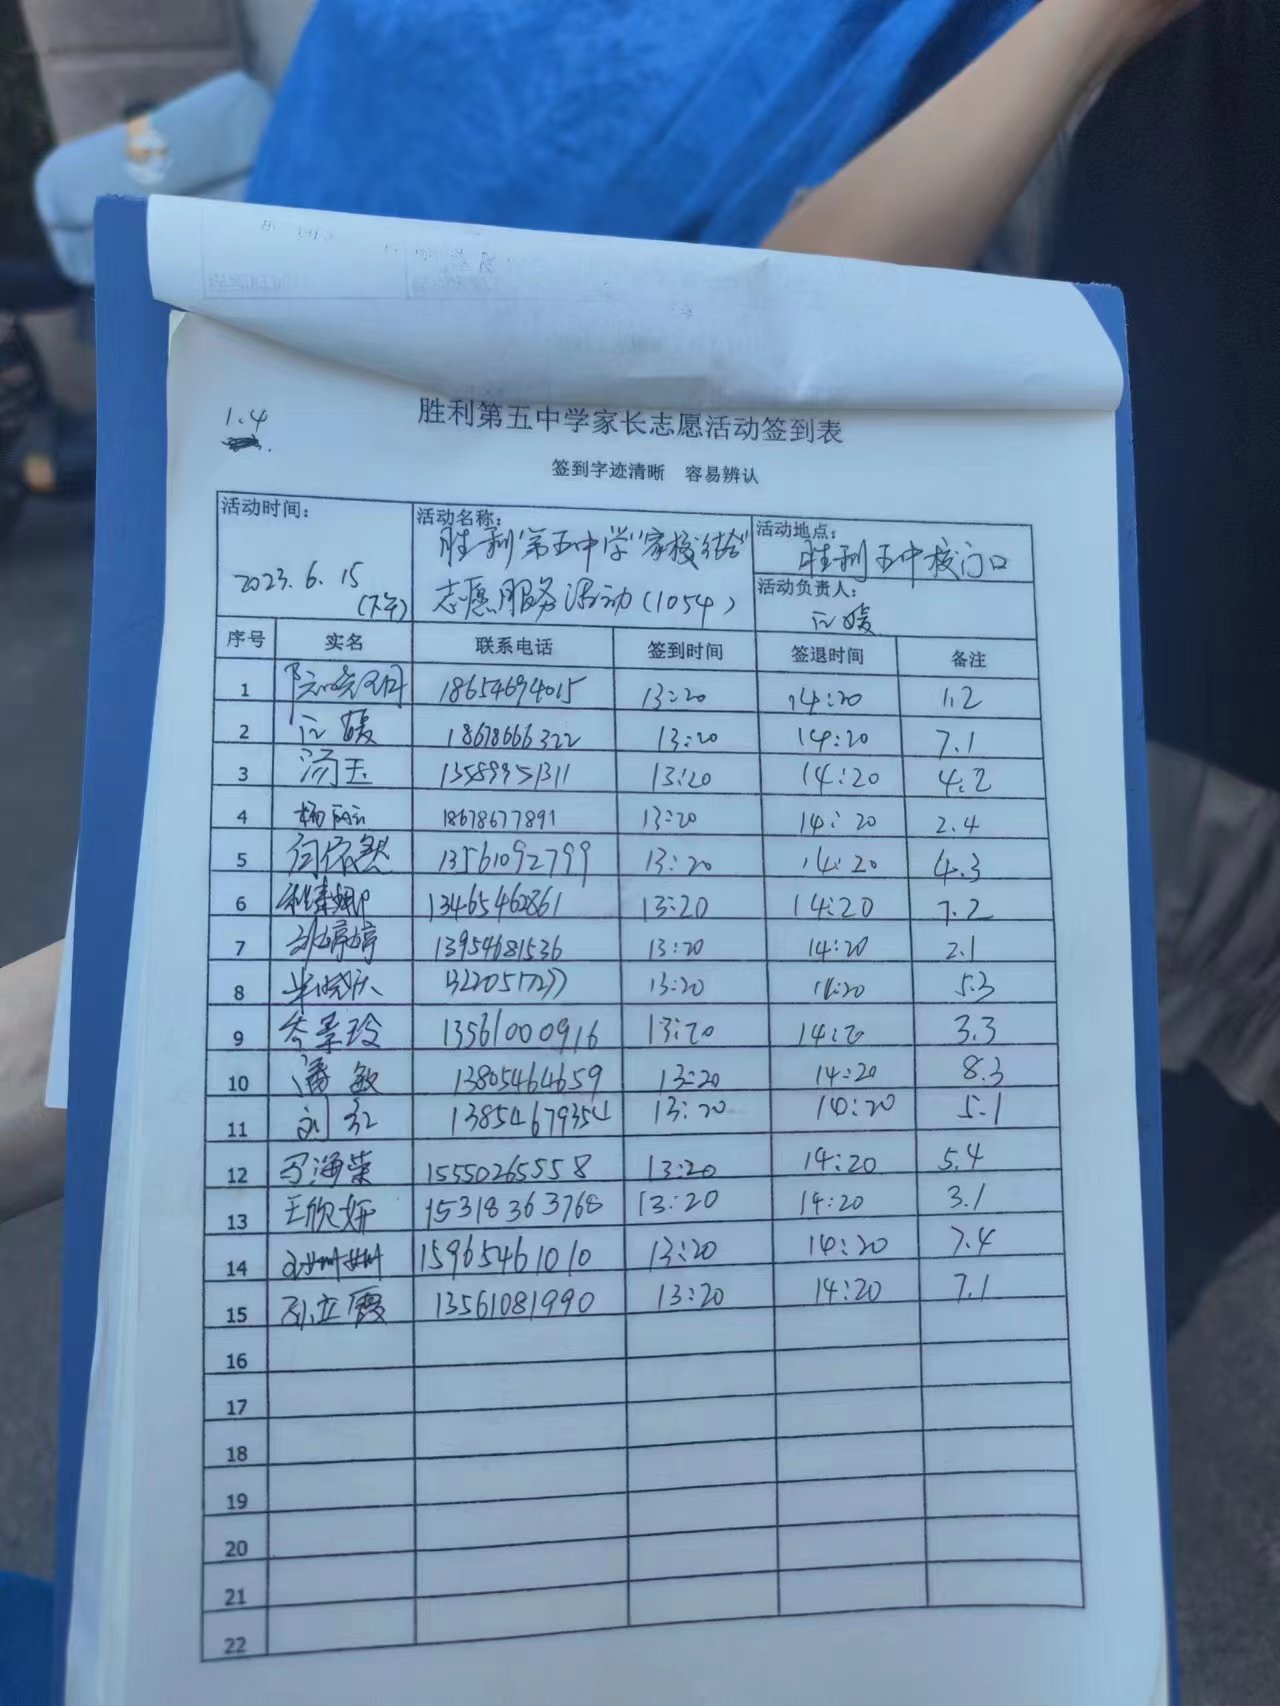 1.4
胜利第五中学家长志愿活动签到表
签到字迹清晰 容易辨认
活动时间: 2023.6.15 (下午)
活动名称: 胜利第五中学"家校结合"
志愿服务活动(1054)
活动地点: 胜利五中校门口
活动负责人: 媛
序号 实名 联系电话 签到时间 签退时间 备注
1 18654694015 13:20 14:20 1.2
2 媛 18678666322 13:20 14:20 7.1
3 汤玉 13589951311 13:20 14:20 4.2
4 杨丽 18678677891 13:20 14:20 2.4
5 依然 13561092799 13:20 14:20 4.3
6 13465462861 13:20 14:20 7.2
7 婷婷 13954681536 13:20 14:20 2.1
8 13:20 14:20 5.3
9 13561000916 13:20 14:20 3.3
10 潘敏 13805464659 13:20 14:20 8.3
11 刘红 13854679354 13:20 14:20 5.1
12 马海荣 15550265558 13:20 14:20 5.4
13 王欣妍 15318363768 13:20 14:20 3.1
14 刘姗姗 15965461010 13:20 14:20 7.4
15 孙立霞 13561081990 13:20 14:20 7.1
16
17
18
19
20
21
22